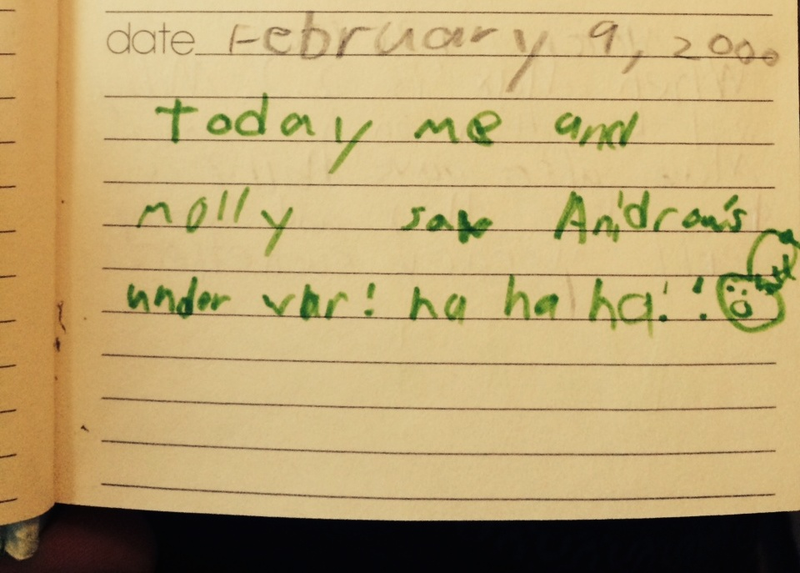 date February 9, 2000
today me and
molly saw Anidrow's
under var! ha ha ha!!